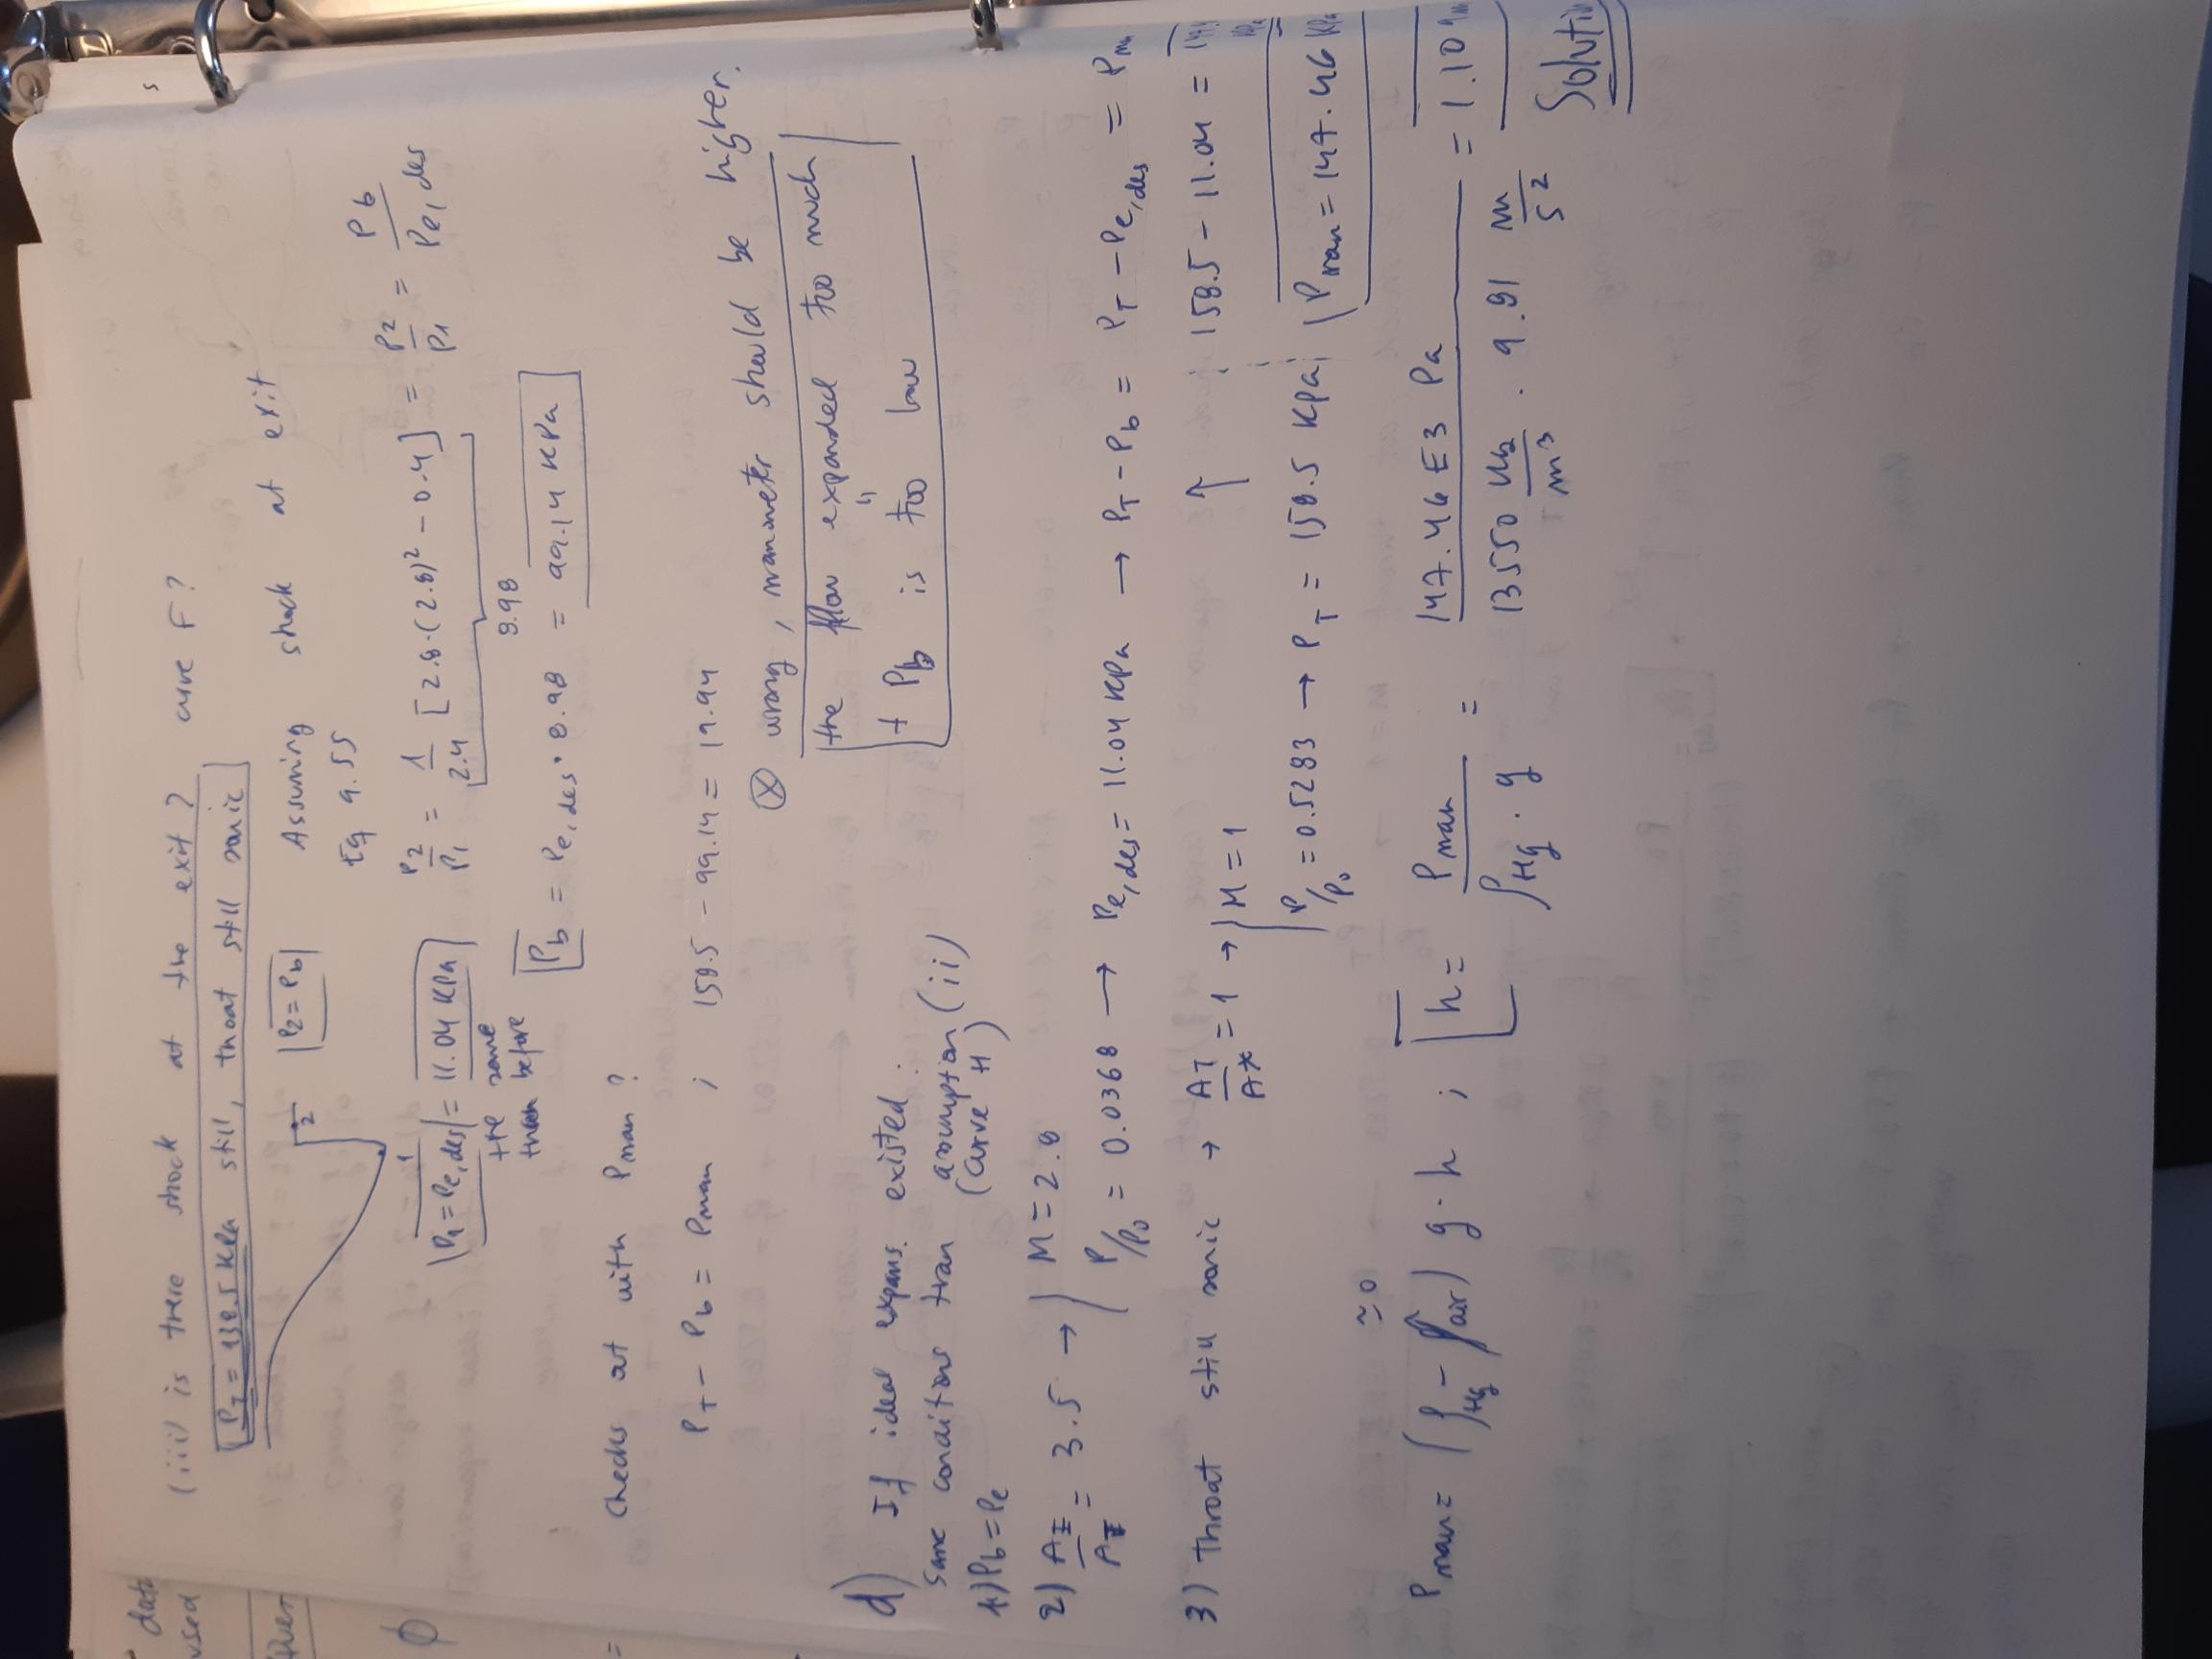 data
used
(iii) is there shock at the exit? curve F?
PT = 138.5 KPa still, thoat still sonic
2
P2 = Pb
Assuming shock at exit
Eq 9.55
1
P1 = Pe,des = 11.04 KPa
the same
than before
P2/P1 = 1/2.4 [2.8·(2.8)² - 0.4] = P2/P1 = Pb/Pe,des
8.98
Pb = Pe,des · 8.98 = 99.14 KPa
Checks out with Pman?
PT - Pb = Pman ; 158.5 - 99.14 = 19.94
⊗ wrong, manometer should be higher.
the flow expanded too much
"
+ Pb is too low
d) If ideal expans. existed:
same conditions than assumption (ii)
(curve H)
1) Pb = Pe
2) AE/AT = 3.5 → M = 2.8
P/P0 = 0.0368 → Pe,des = 11.04 KPa → PT - Pb = PT - Pe,des =
; 158.5 - 11.04 =
3) throat still sonic → AT/A* = 1 → M = 1
P/P0 = 0.5283 → PT = 158.5 KPa
Pman = 147.46 KPa
≃ 0
Pman = (ρHg - ρair) g·h ; h = Pman/ρHg · g = 147.46 E3 Pa / 13550 Kg/m3 · 9.81 m/s2 = 1.10